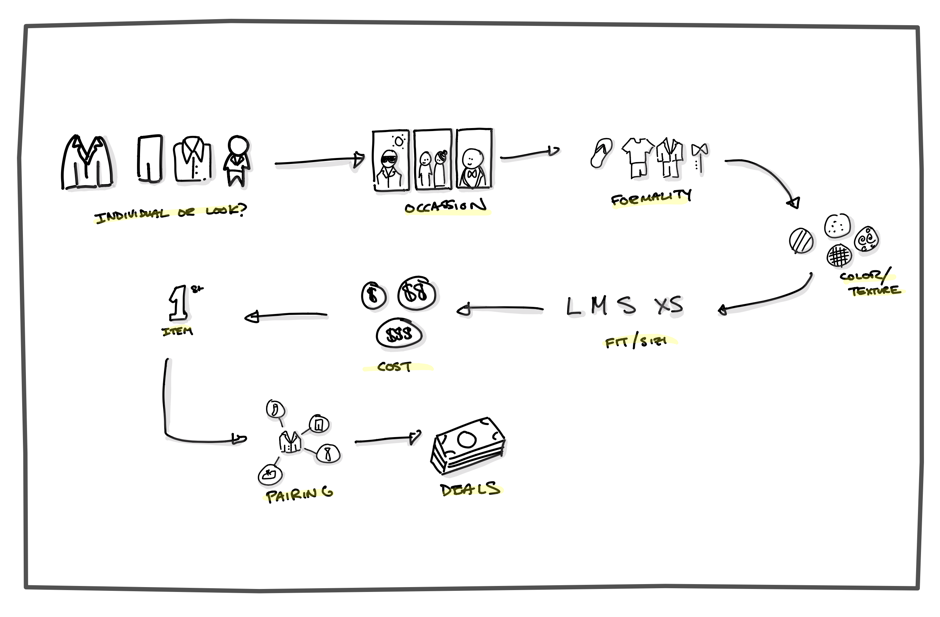 INDIVIDUAL OR LOOK?
OCCASSION
FORMALITY
COLOR/
TEXTURE
L M S XS
FIT/SIZE
$ $$
$$$
COST
1st
ITEM
PAIRING
DEALS